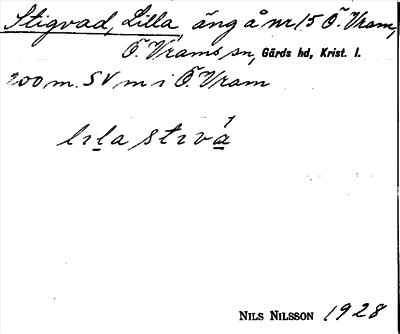 Stigvad, Lilla, äng å nr 15 Ö. Vram,
Ö. Vrams sn, Gärds hd, Krist. l.
200 m. SV m i Ö. Vram
lıla stıvá
NILS NILSSON 1928